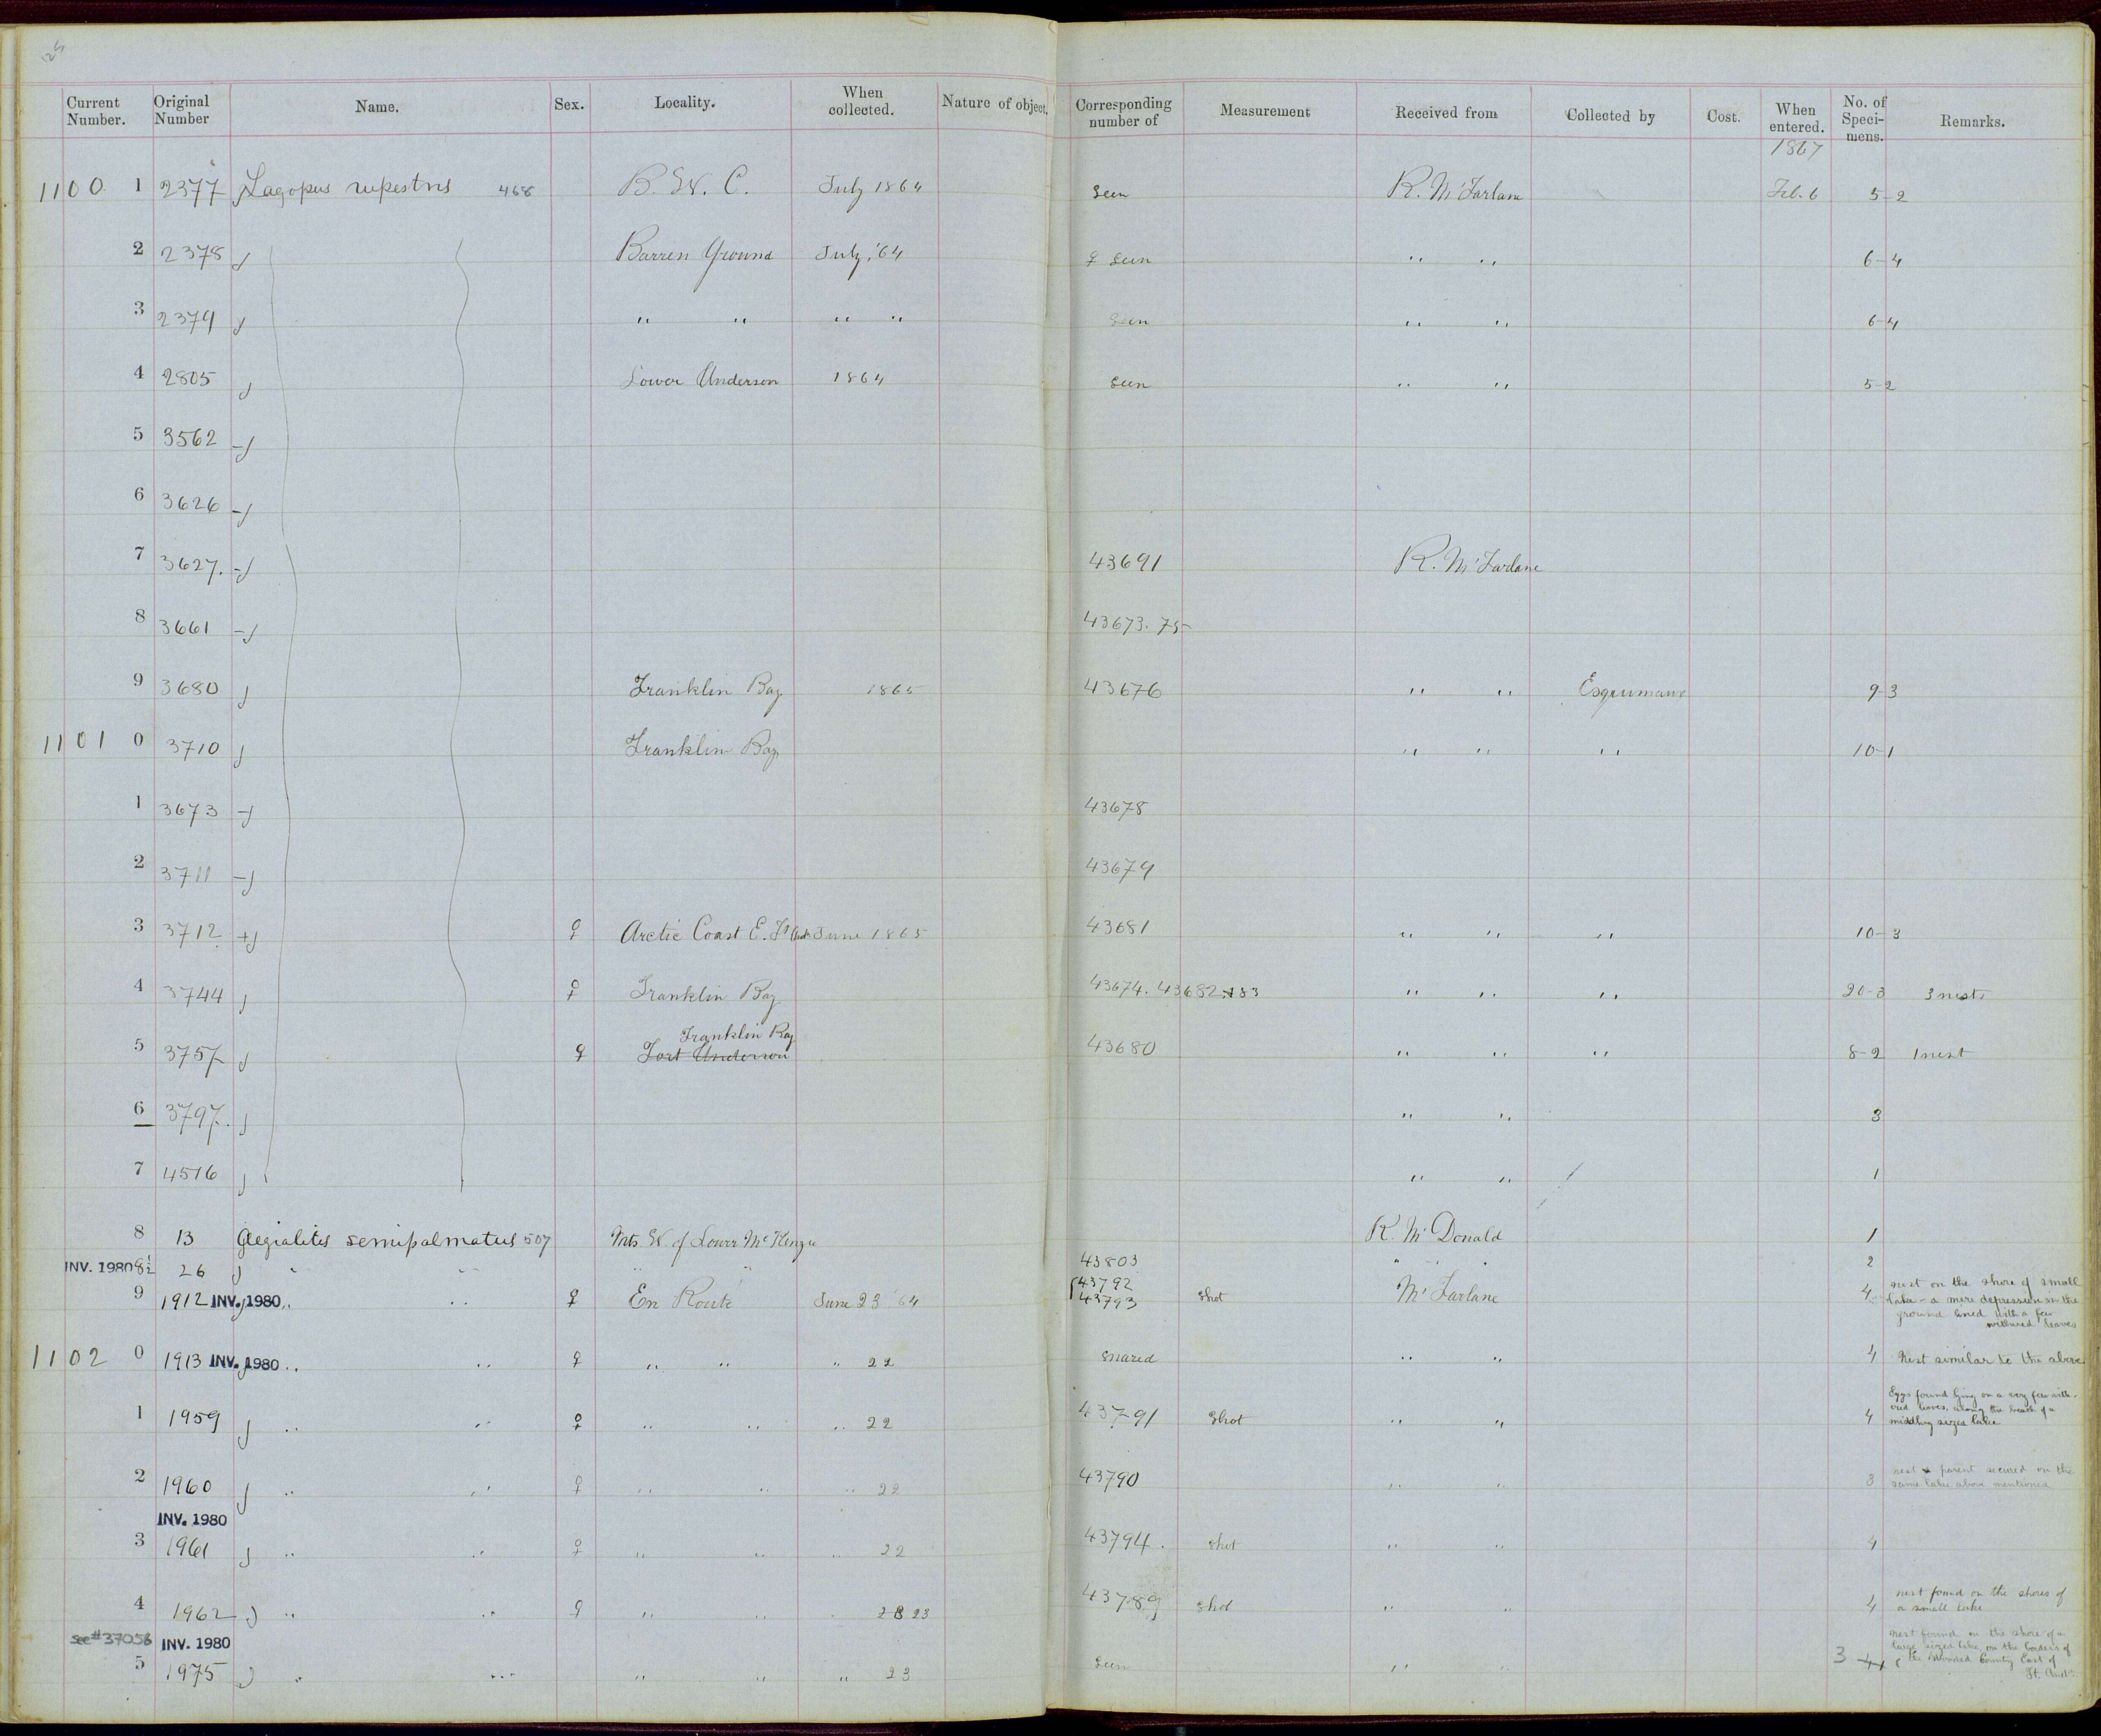 Current Number. Original Number Name. Sex. Locality. When collected. Nature of object. Corresponding number of Measurement Received from Collected by Cost. When entered. No. of Speci-mens. Remarks.
1867
1100 1 2377 Lagopus rupestris 468 B. W. C. July 1864 Seen R. McFarlane Feb. 6 5-2
2 2378 Barren Ground July, '64 ♀ Seen " " 6-4
3 2379 " " " " Seen " " 6-4
4 2805 Lower Anderson 1864 Seen " " 5-2
5 3562
6 3626
7 3627. 43691 R. McFarlane
8 3661 43673.75
9 3680 Franklin Bay 1865 43676 " " Esquimaux 9-3
1101 0 3710 Franklin Bay " " " 10-1
1 3673 43678
2 3711 43679
3 3712 ♀ Arctic Coast E. Ft And June 1865 43681 " " " 10-3
4 3744 ♀ Franklin Bay 43674. 43682.+83 " " " 20-3 3 nests
Franklin Bay
5 3757 ♀ Fort Anderson 43680 " " " 8-2 1 nest
6 3797. " " 3
7 4516 " " 1
8 13 Aegialitis semipalmatus 507 Mts. W. of Lower McKenzie R. McDonald 1
INV. 1980 8½ 26 " " " " 43803 " " 2
9 1912 INV. 1980 " " ♀ En Route June 23 '64 {43792 43793 Shot McFarlane 4 nest on the shore of small
lake - a mere depression in the
ground lined with a few
withered leaves
1102 0 1913 INV. 1980 " " ♀ " " " 22 Snared " " 4 Nest similar to the above
1 1959 " " ♀ " " " 22 43791 Shot " " 4 Eggs found lying on a very few with-
ered leaves, along the beach of a
middling sized lake
2 1960 " " ♀ " " " 22 43790 " " 3 nest & parent secured on the
same lake above mentioned
INV. 1980
3 1961 " " ♀ " " " 22 43794. Shot " " 4
4 1962 " " ♀ " " " 23 43789 Shot " " 4 nest found on the shores of
a small lake
see # 37056 INV. 1980
5 1975 " " " " " 23 Seen " " 3 4 nest found on the shore of a
large sized lake, on the borders of
the Wooded Country East of
Ft. And.